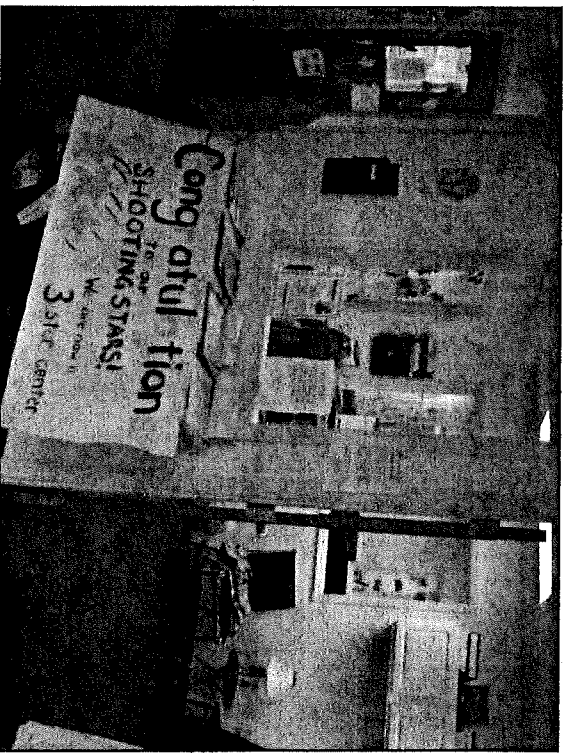 Cong atul tion
to our
SHOOTING STARS!
We are now a
3 star center